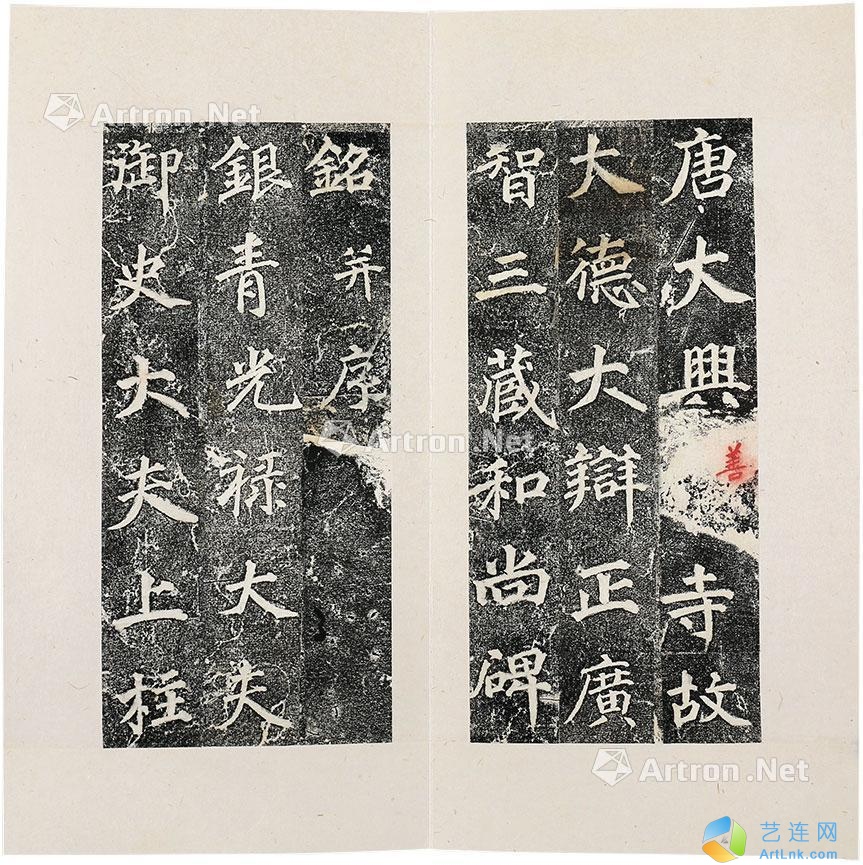 唐大興善寺故
大德大辯正廣
智三藏和尚碑
銘并序
銀青光禄大夫
御史大夫上柱
Artron.Net
Artron.Net
Artron.Net
艺连网
ArtLnk.com